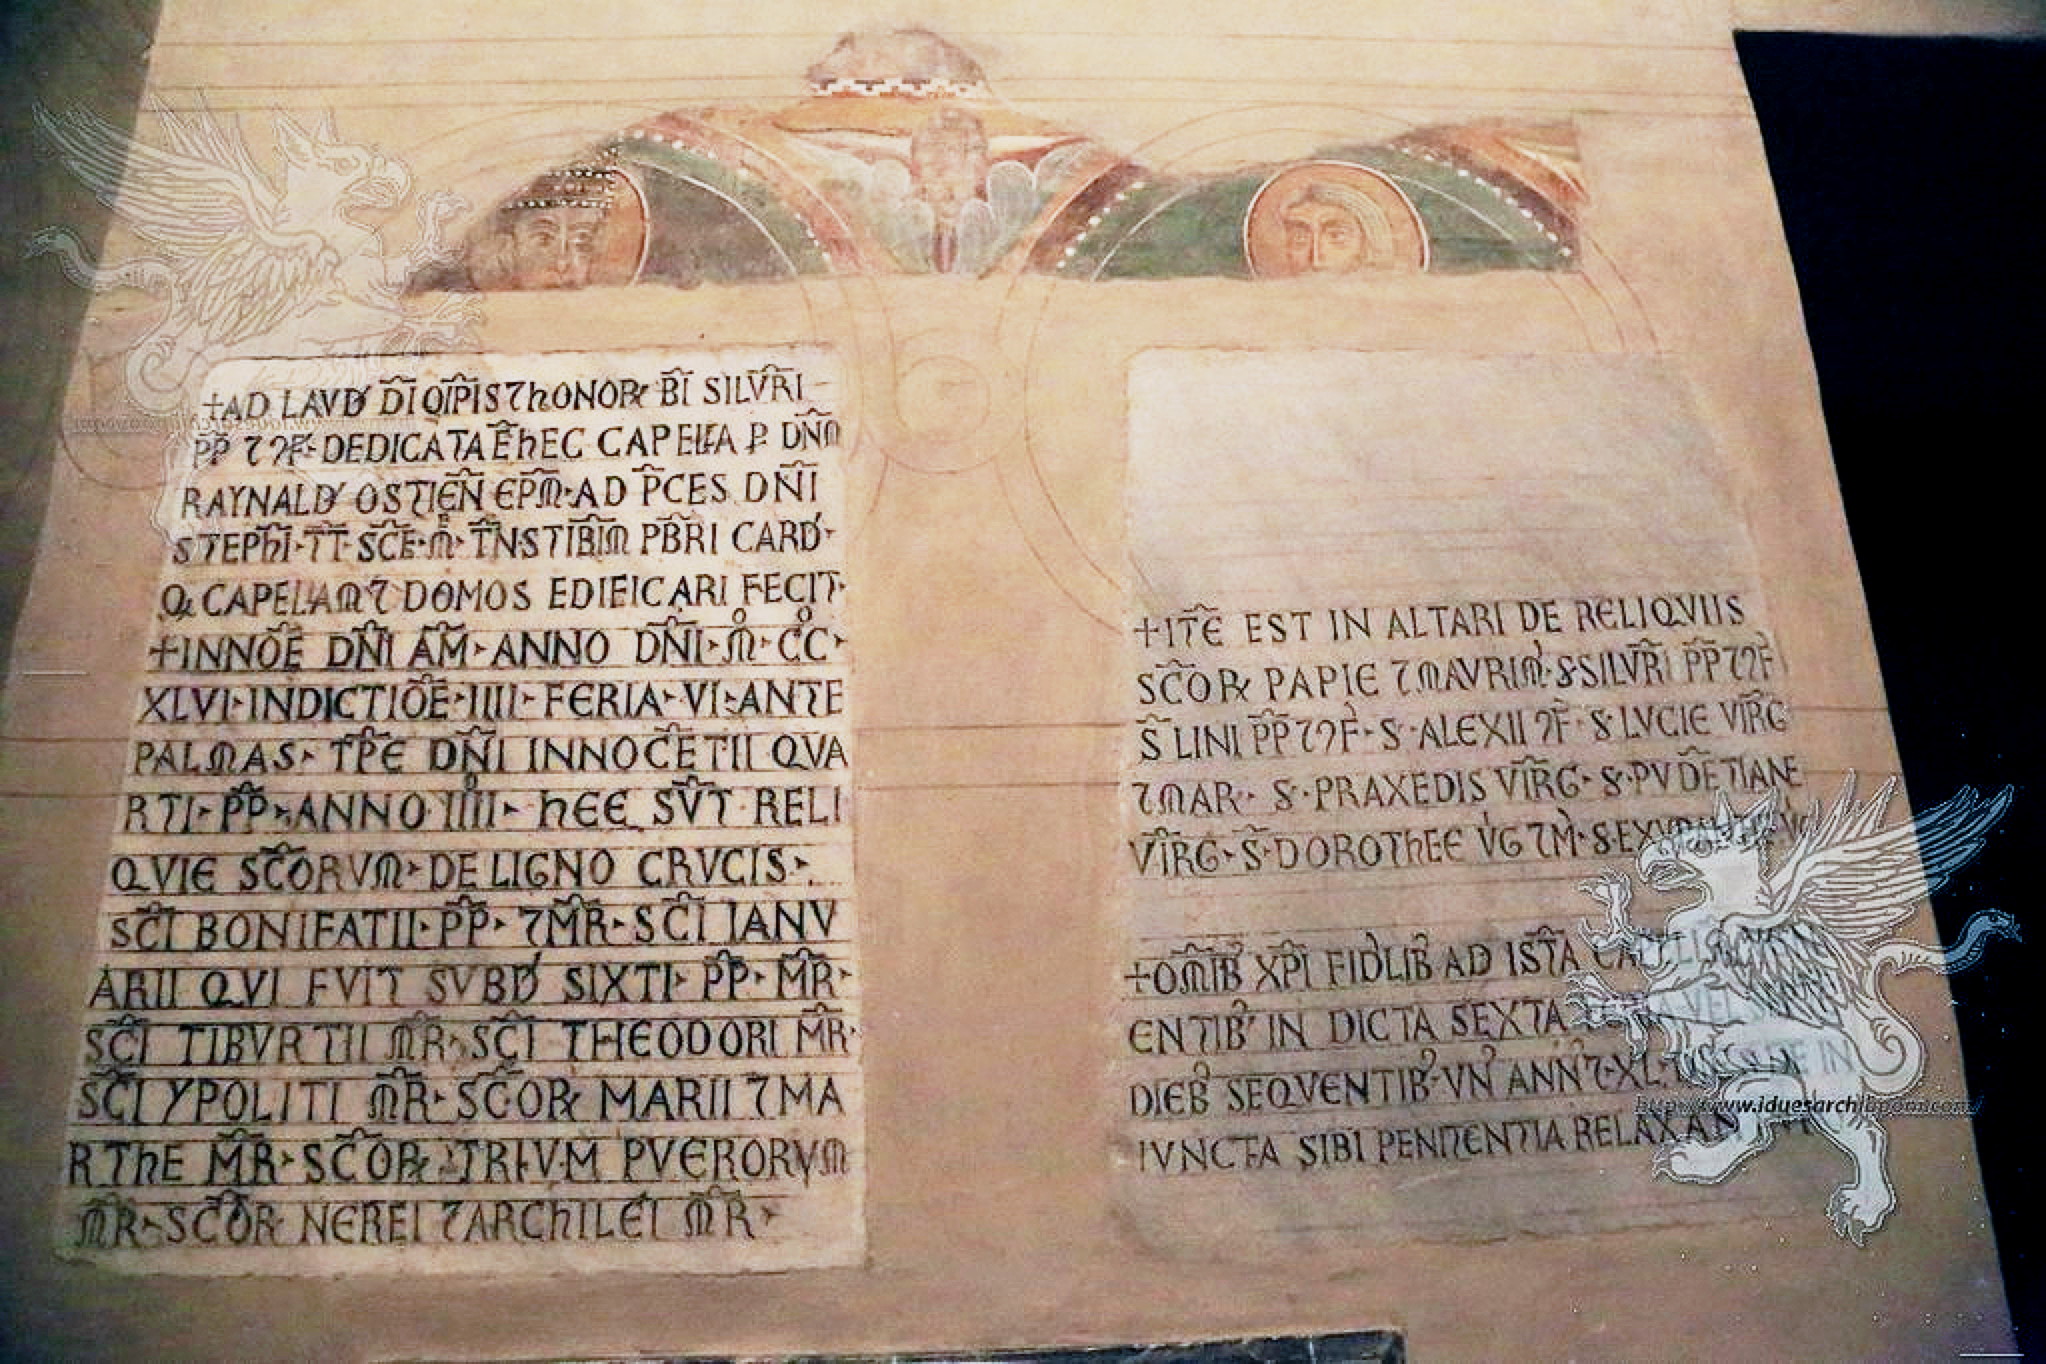 +AD LAVD' DI OIPIS 7 hONOR BI SILVRI
PP 7 ɔF· DEDICATA E hEC CAPELLA P DNM
RAYNALD' OSTIEN EPM· AD PCES DNI
STEPhI· TT· SCE· M· TNSTIBIM PBRI CARD·
Q CAPELLAM 7 DOMOS EDIFICARI FECIT·
+INNOE DNI AM· ANNO DNI· M· CC·
XLVI· INDICTIOE· IIII· FERIA· VI· ANTE
PALMAS· TPE DNI INNOCETII QVA
RTI· PP· ANNO IIII· hEE SVT· RELI
QVIE SCORVM· DE LIGNO CRVCIS·
SCI BONIFATII· PP· 7 MR· SCI IANV
ARII QVI FVIT SVBD' SIXTI· PP· MR·
SCI TIBVRTII MR· SCI THEODORI MR·
SCI YPOLITI MR· SCOR MARII 7 MA
RThE MR· SCOR TRIVM PVERORVM
MR· SCOR NEREI 7 ARChILEI MR·
+ITE EST IN ALTARI DE RELIQVIIS
SCOR PAPIE 7 MAVRI M· S· SILVRI PP 7 ɔF
S LINI PP 7 ɔF· S· ALEXII ɔF· S· LVCIE VIRG
7 MAR· S· PRAXEDIS VIRG· S· PVDETIANE
VIRG· S· DOROThEE VG 7 M·
+OMIB' XPI FIDLIB AD ISTA
ENTIB' IN DICTA SEXTA
DIEB SEQVENTIB· VN ANN' 7· XL· IN
IVNCTA SIBI PENITENTIA
http://www.iduesarchibpoor.com/